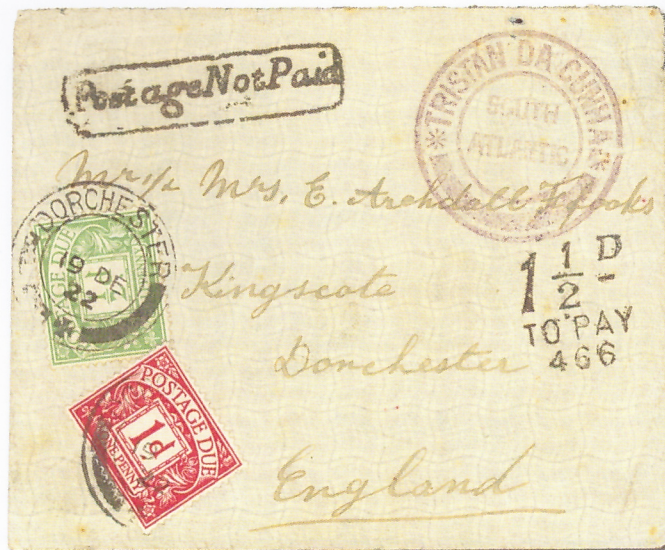 Postage Not Paid
* TRISTAN DA CUNHA *
SOUTH
ATLANTIC
Mr & Mrs. E. Archdall Ffooks
Kingscote
Dorchester
England
1 1/2 D
TO PAY
466
DORCHESTER
19 DE
22
POSTAGE DUE
½d
POSTAGE DUE
1d
ONE PENNY